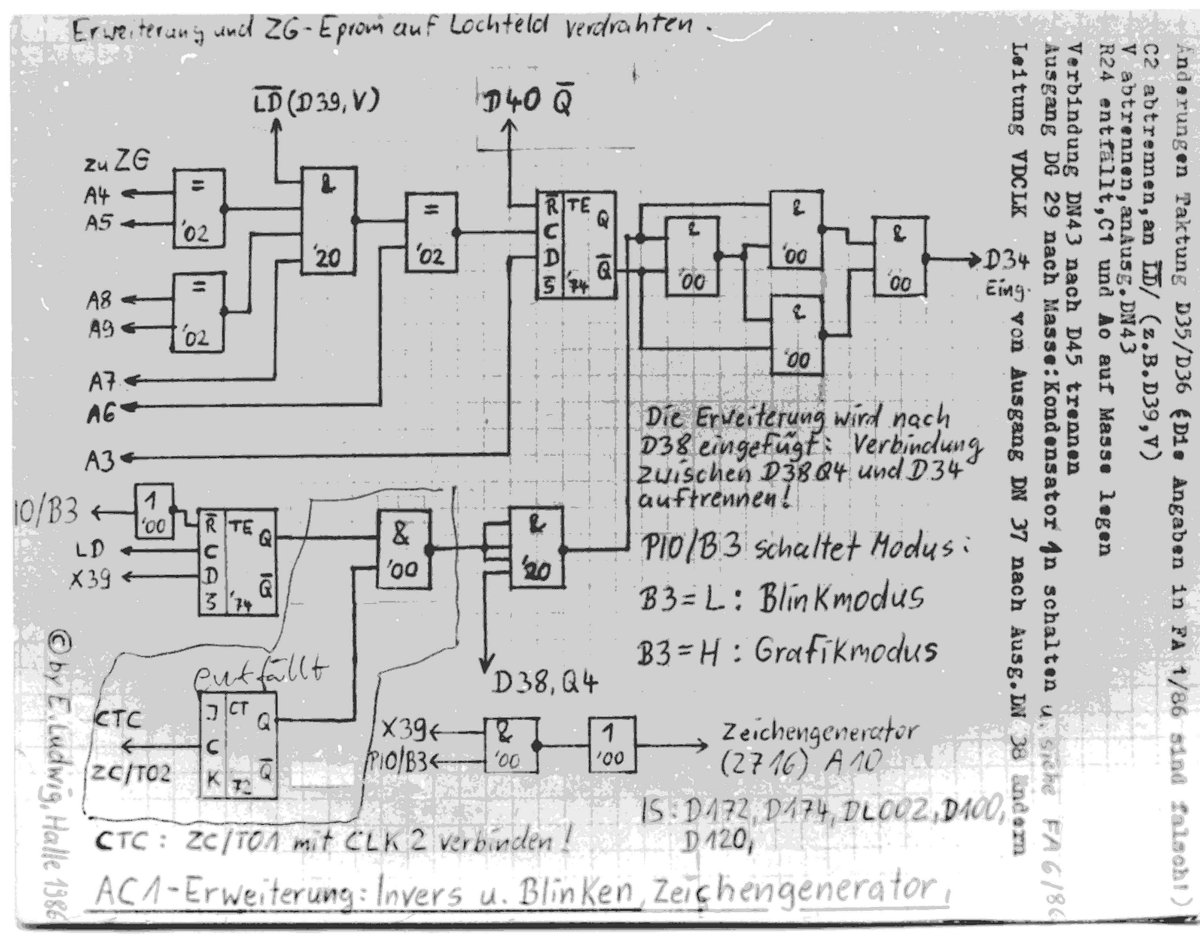 Erweiterung und ZG-Eprom auf Lochfeld verdrahten.
L̅D̅ (D39,V)
D40 Q̅
zu ZG
A4
A5
=
'02
&
'20
=
'02
R̅ TE Q
C
D Q̅
S̅ '74
&
'00
&
'00
&
'00
&
'00
D34
Eing
A8
A9
=
'02
A7
A6
A3
Die Erweiterung wird nach
D38 eingefügt: Verbindung
zwischen D38Q4 und D34
auftrennen!
IO/B3
1
'00
LD
X39
R̅ TE Q
C
D Q̅
S̅ '74
&
'00
&
'20
PIO/B3 schaltet Modus:
B3=L: Blinkmodus
B3=H: Grafikmodus
D38,Q4
entfällt
CTC
ZC/TO2
J CT Q
C
K 72 Q̅
X39
PIO/B3
&
'00
1
'00
Zeichengenerator
(2716) A10
IS: D172, D174, DL002, D100,
D120,
CTC: ZC/TO1 mit CLK 2 verbinden!
AC1-Erweiterung: Invers u. Blinken, Zeichengenerator,
© by E.Ludwig, Halle 1986
Änderungen Taktung D35/D36 (Die Angaben in FA 1/86 sind falsch!)
C2 abtrennen,an L̅D̅/ (z.B.D39,V)
V abtrennen,anAusg.DN43
R24 entfällt,C1 und Ao auf Masse legen
Verbindung DN43 nach D45 trennen
Ausgang DG 29 nach Masse:Kondensator 1n schalten u. siehe FA 6/86
Leitung VDCLK von Ausgang DN 37 nach Ausg.DN 38 ändern